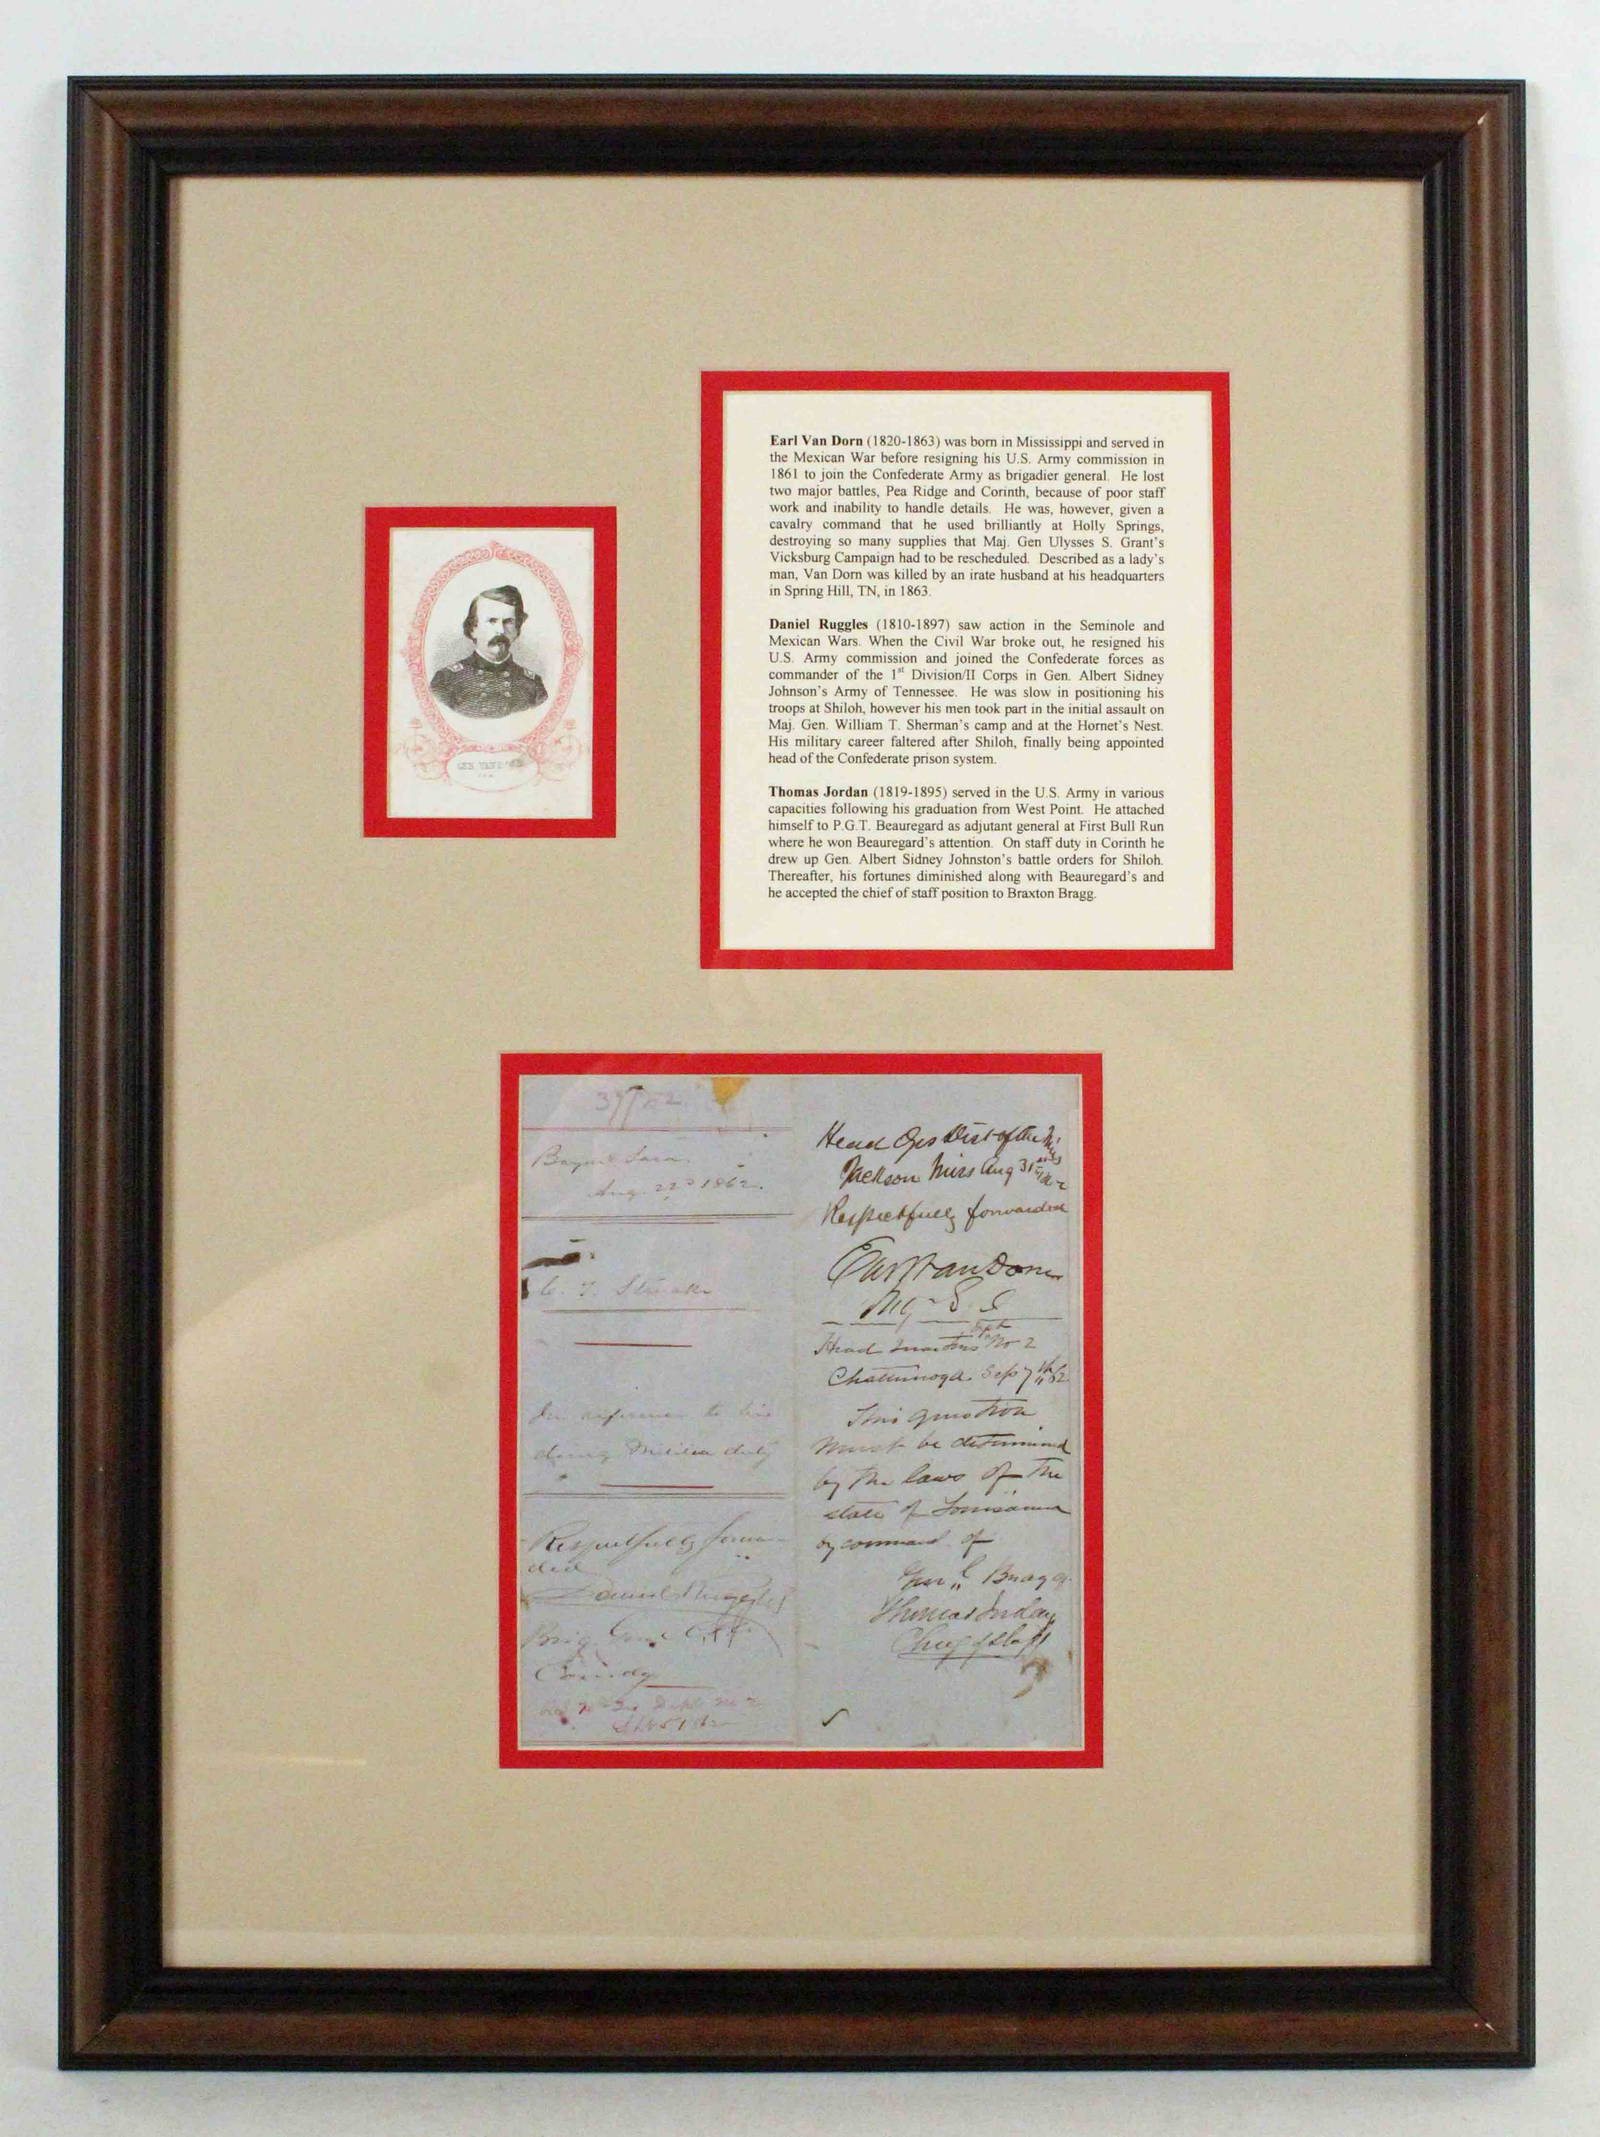 GEN. VAN DORN
Earl Van Dorn (1820-1863) was born in Mississippi and served in
the Mexican War before resigning his U.S. Army commission in
1861 to join the Confederate Army as brigadier general. He lost
two major battles, Pea Ridge and Corinth, because of poor staff
work and inability to handle details. He was, however, given a
cavalry command that he used brilliantly at Holly Springs,
destroying so many supplies that Maj. Gen Ulysses S. Grant's
Vicksburg Campaign had to be rescheduled. Described as a lady's
man, Van Dorn was killed by an irate husband at his headquarters
in Spring Hill, TN, in 1863.
Daniel Ruggles (1810-1897) saw action in the Seminole and
Mexican Wars. When the Civil War broke out, he resigned his
U.S. Army commission and joined the Confederate forces as
commander of the 1st Division/II Corps in Gen. Albert Sidney
Johnson's Army of Tennessee. He was slow in positioning his
troops at Shiloh, however his men took part in the initial assault on
Maj. Gen. William T. Sherman's camp and at the Hornet's Nest.
His military career faltered after Shiloh, finally being appointed
head of the Confederate prison system.
Thomas Jordan (1819-1895) served in the U.S. Army in various
capacities following his graduation from West Point. He attached
himself to P.G.T. Beauregard as adjutant general at First Bull Run
where he won Beauregard's attention. On staff duty in Corinth he
drew up Gen. Albert Sidney Johnston's battle orders for Shiloh.
Thereafter, his fortunes diminished along with Beauregard's and
he accepted the chief of staff position to Braxton Bragg.
Bayou Sara
Aug. 22d 1862.
In reference to his
doing Militia duty
Respectfully forwar-
ded
Daniel Ruggles
Brig. Genl
Comdg
Head Qrs Dist of the Miss
Jackson Miss Aug 31st
Respectfully forwarded
Earl Van Dorn
Maj. G.
Head Quarters Dpt No 2
Chattanooga Sep 7th 62
This question
must be determined
by the laws of the
state of Louisiana
by command of
Genl Bragg
Thomas Jordan
Chief of Staff